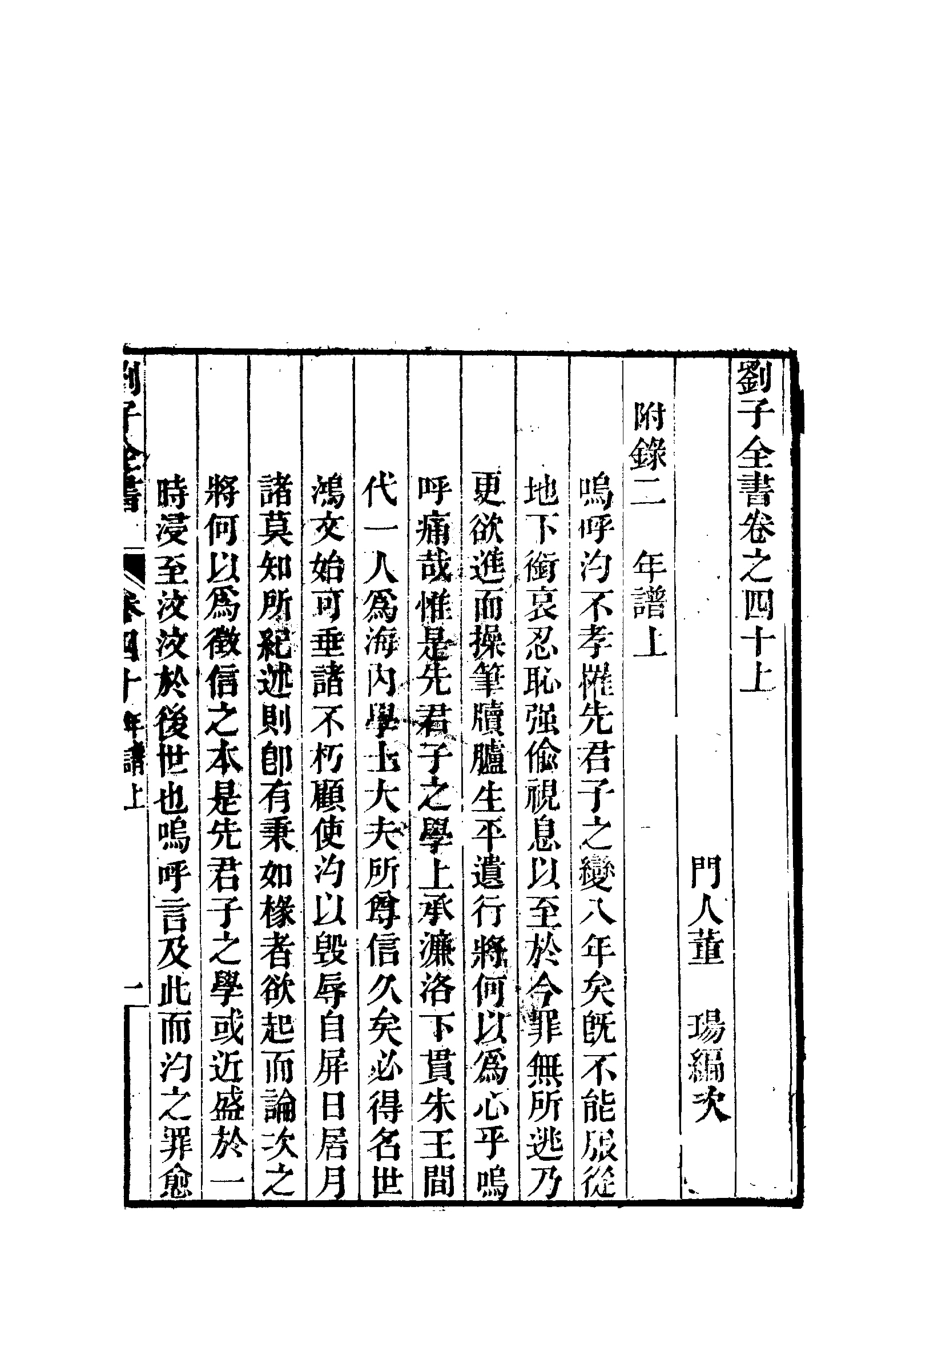 劉子全書卷之四十上
門人董　瑒編次
附錄二　年譜上
嗚呼汋不孝罹先君子之變八年矣旣不能殷從
地下銜哀忍恥强偷視息以至於今罪無所逃乃
更欲進而操筆牘臚生平遺行將何以爲心乎嗚
呼痛哉惟是先君子之學上承濂洛下貫朱王間
代一人爲海內學士大夫所尊信久矣必得名世
鴻文始可垂諸不朽顧使汋以毀辱自屏日居月
諸莫知所紀述則卽有秉如椽者欲起而論次之
將何以爲徵信之本是先君子之學或近盛於一
時浸至汶汶於後世也嗚呼言及此而汋之罪愈
劉子全書　卷四十年譜上　一